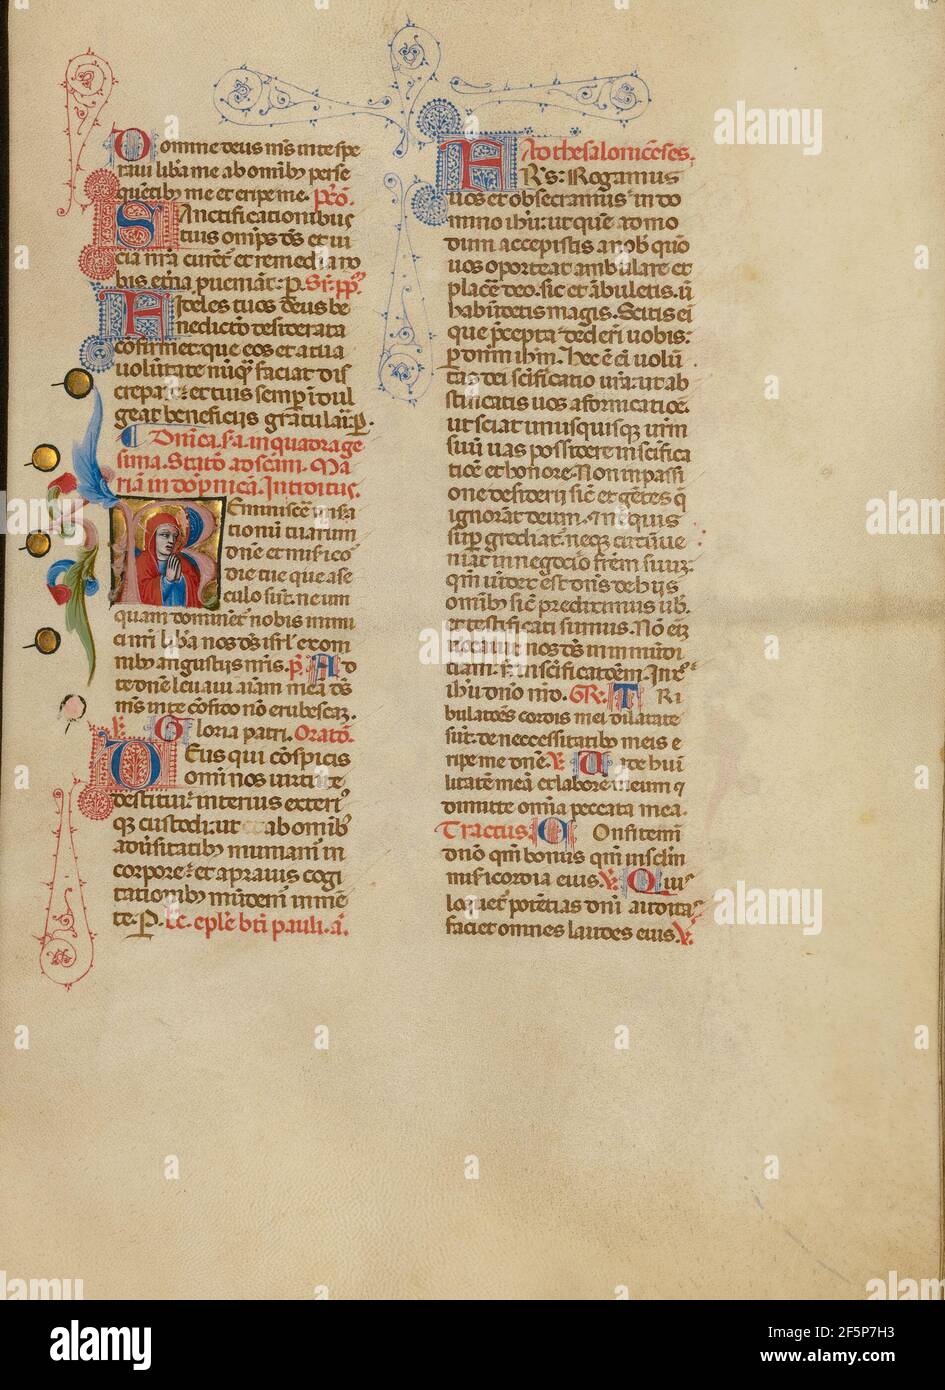 Domine deus m̄s in te spe
raui libera me ab omnib; perse
quentib; me et eripe me. p̄cō.
Sanctificationibus
tuis om̄ps ds̄ et ui
cia nr̄a curent et remedia no
bis etn̄a ꝓueniāt: p. Sr̄. pp̄.
Fideles tuos deus be
nedictō desiderata
cōfirmet: que eos et a tua
uolūtate nūq̄ faciat dis
crepare et tuis semꝑ īdul
geat beneficijs gratulari. p.
Dn̄ica. scā. in quadrage
sima. Statō ad scām. Ma
riam in dōpnica. Introitus.
Reminiscere misera
tionū tuarum
dn̄e et mīscō
die tue que a se
culo sūt. ne um
quam dominēt nobis inimi
ci nr̄i libera nos ds̄ isrl̄ ex om
nib; angustijs nr̄is. p̄. Ad
te dn̄e leuaui aīam meā ds̄
m̄s in te cōfido nō erubescā.
℣. Gloria patri. Oratō.
Deus qui cōspicis
omī nos uirtute
destitui: interius exteri9
q; custodi: ut ab omīb;
aduersitatib; muniam̄ in
corpore: et a prauis cogi
tationib; mūdem̄ in mē
te. p. Lc̄. eple bt̄i pauli. a.
Ad thesalonicēses.
Fr̄s: Rogamus
uos et obsecramus in do
mino ihū: ut quē admo
dum accepistis a nob̄ quō
uos oporteat ambulare et
placē deo. sic et ābuletis. ut
habundetis magis. Scitis eī
que p̄cepta dederī uobis:
p dn̄m ihm̄. Hec ē eī uolū
tas dei sc̄ificatio ur̄a: ut ab
stineatis uos a fornicatiōe.
ut sciat unusquisq; ur̄m
suū uas possidere in sc̄ifica
tiōe et honore. Non in passi
one desiderij sic̄ et gētes q̄
ignorāt deum. Ne quis
suꝑ grediat: neq; circūue
niat in negocio fr̄em suū:
qm̄ uindex est dn̄s de hijs
omīb; sic̄ predixīmus ub̄.
et testificati sumus. Nō eī
uocauit nos ds̄ in inmūdi
ciam. s; in sc̄ificatōem. In xp̄o
ihū dn̄o nr̄o. GR̄. Tri
bulatōes cordis mei dilatate
sūt: de neccessitatib; meis e
ripe me dn̄e. ℣. Vide humi
litatē meā et laborē meum q
dimitte omīa peccata mea.
Tractus. Confitemī
dn̄o qm̄ bonus qm̄ in sc̄lm̄
mīscōrdia eius. ℣. Quis
loquet̄ potētias dn̄i audita9
faciet omnes laudes eius. ℣.
alamy
Image ID: 2F5P7H3
www.alamy.com